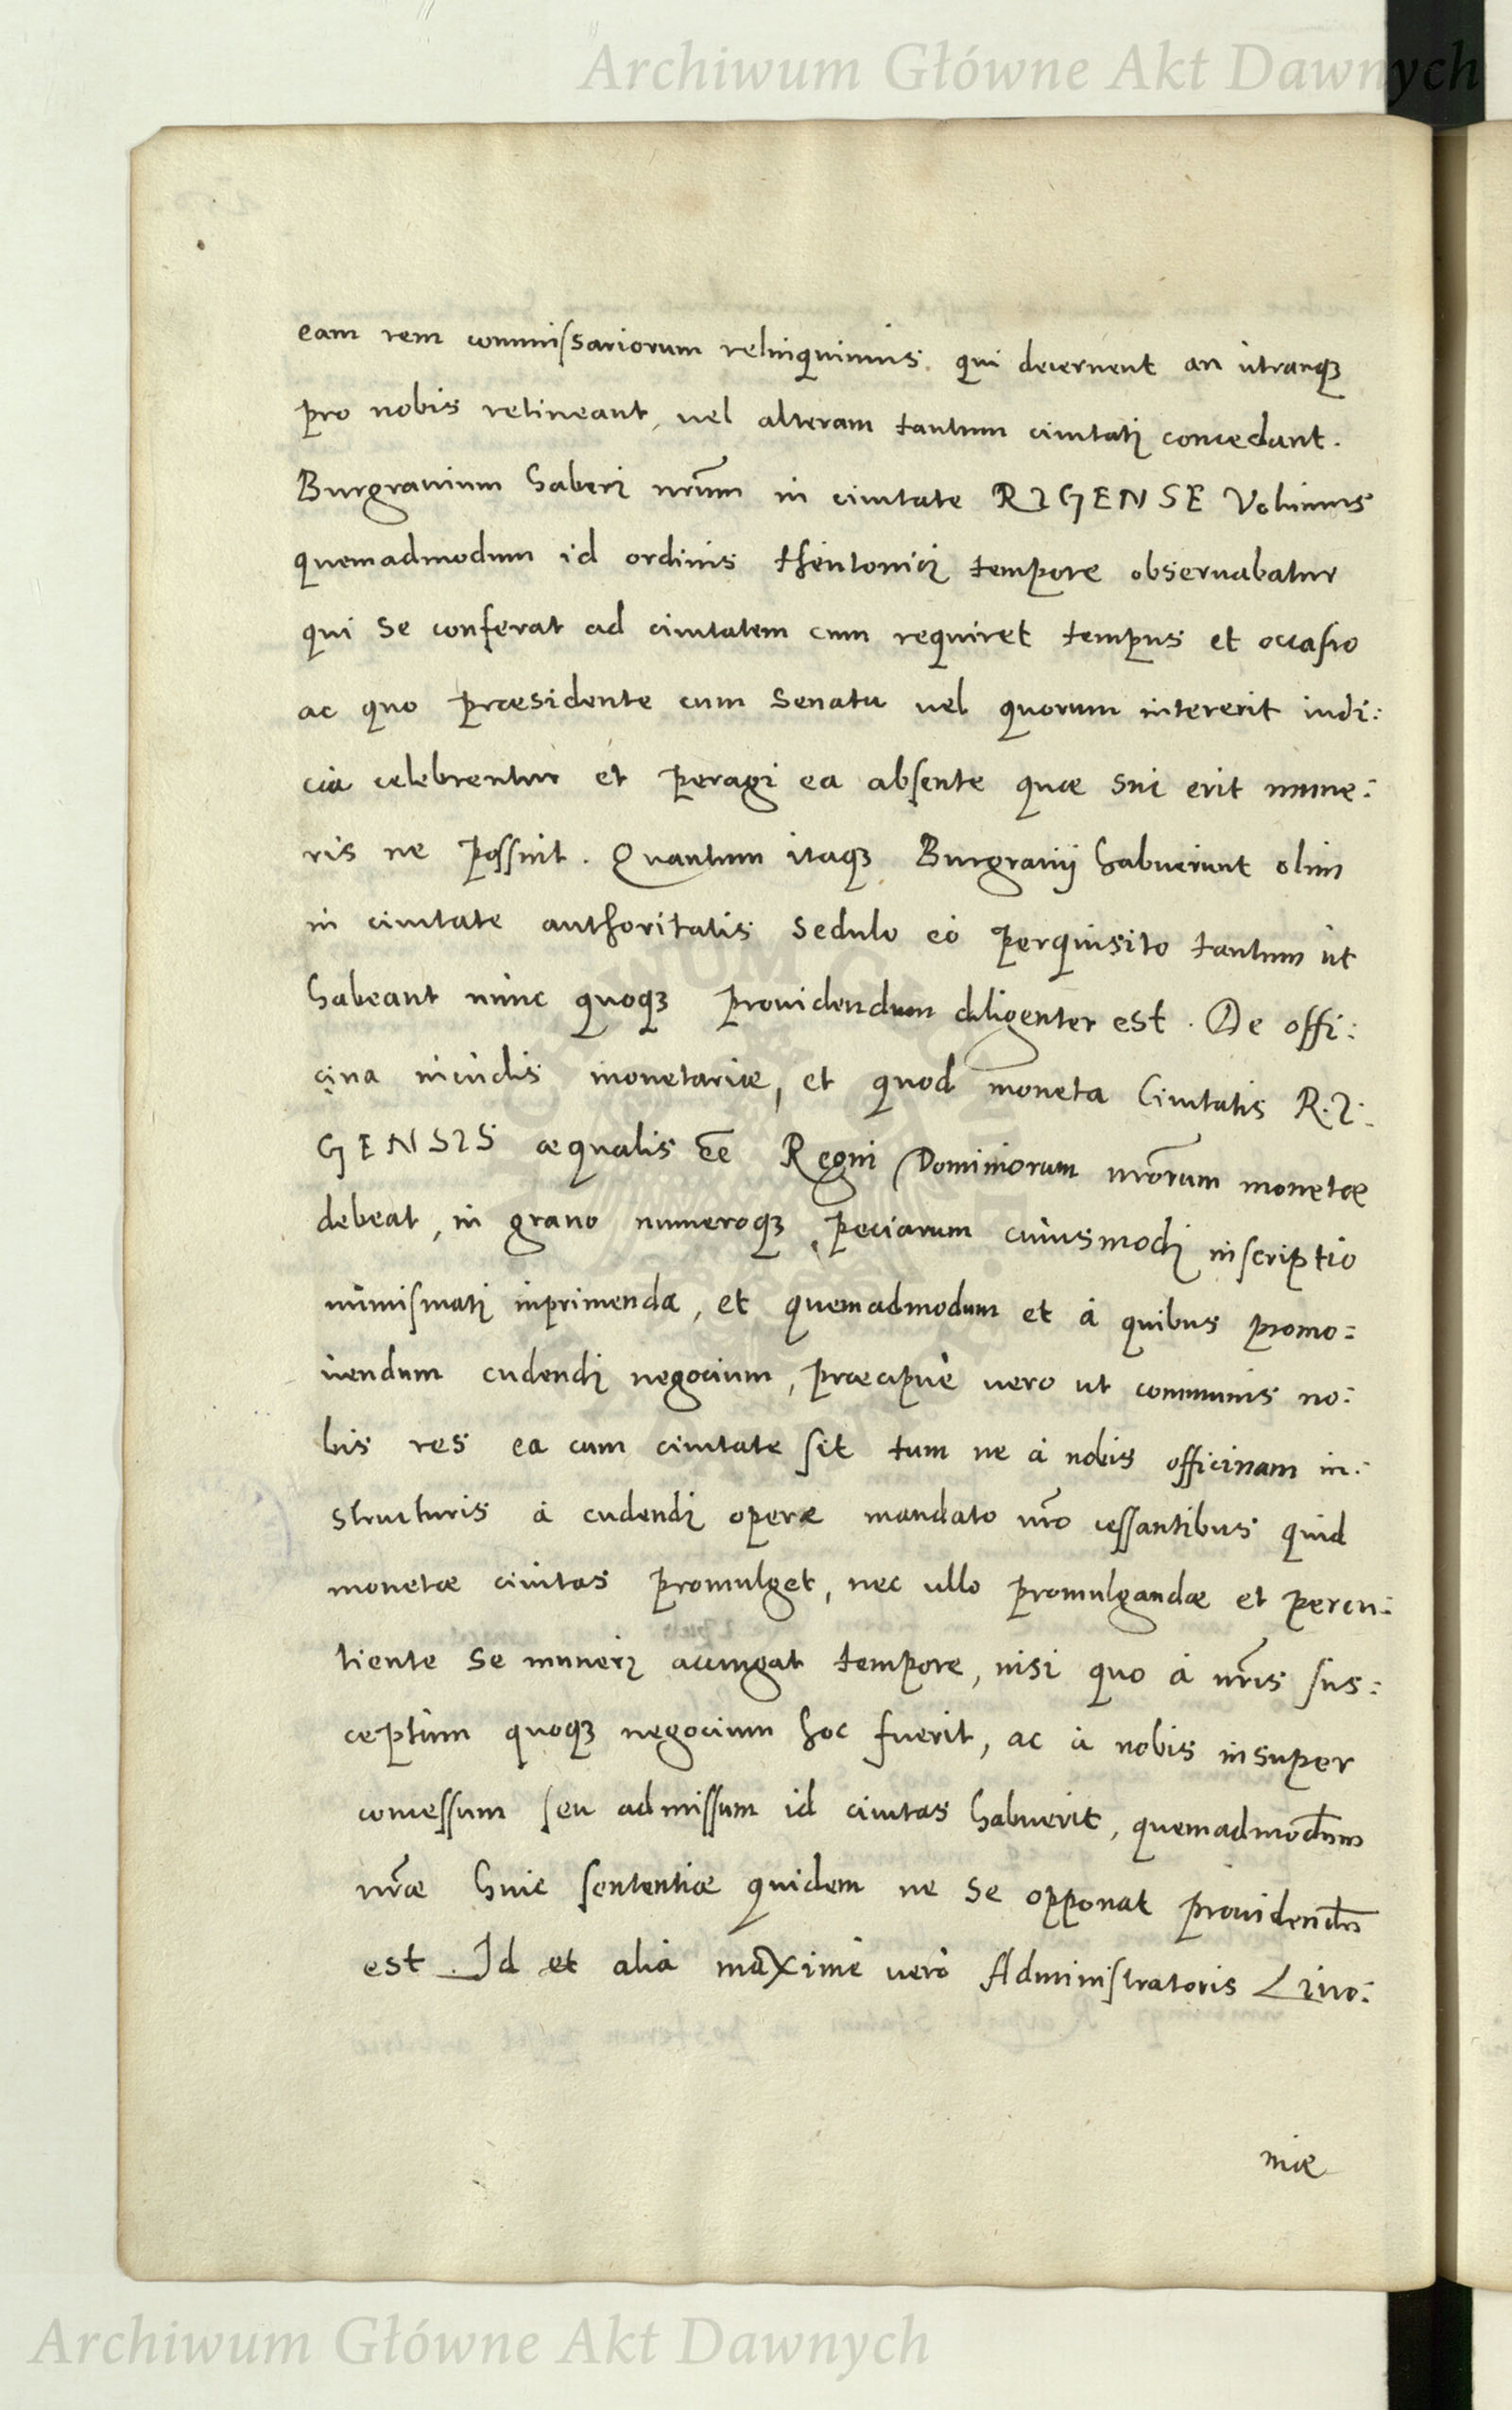 Archiwum Główne Akt Dawnych
eam rem commissariorum relinquimus. qui decernent an ùtranqȝ
pro nobis retineant, uel alteram tantum ciuitati concedant.
Burgrauium haberi nr̃um in ciuitate RIGENSE Volumus
quemadmodum id ordinis theutonici tempore obseruabatur
qui se conferat ad ciuitatem cum requiret tempus et occasio
ac quo præsidente cum Senatu uel quorum intererit iudi:
cia celebrentur et peragi ea absente quæ sui erit mune:
ris ne possint. Quantum itaqȝ Burgrauij habuerunt olim
in ciuitate authoritatis sedulo eò perquisito tantum ùt
habeant nunc quoqȝ prouidendum diligenter est. De offi:
cina incùdis monetariæ, et quod moneta Ciuitatis R.I:
GENSIS æqualis ẽe Regni Dominiorum nr̃orum monetæ
debeat, in grano numeroqȝ peciarum cuiusmodi inscriptio
numismati inprimenda, et quemadmodum et à quibus promo:
uendum cudendi negocium, præcipuè uero ut communis no:
bis res ea cum ciuitate sit tum ne à nobis officinam in:
structuris à cudendi opera mandato nr̃o cessantibus quid
monetæ ciuitas promulget, nec ullo promulgandæ et percu:
tiente se muneri accingat tempore, nisi quo à nr̃is sus:
ceptum quoqȝ negocium hoc fuerit, ac à nobis insuper
concessum seu admissum id ciuitas habuerit, quemadmodum
nr̃æ huic sententiæ quidem ne se opponat prouidendũ
est. Id et alia maximè uerò Administratoris Liuo:
niæ
Archiwum Główne Akt Dawnych